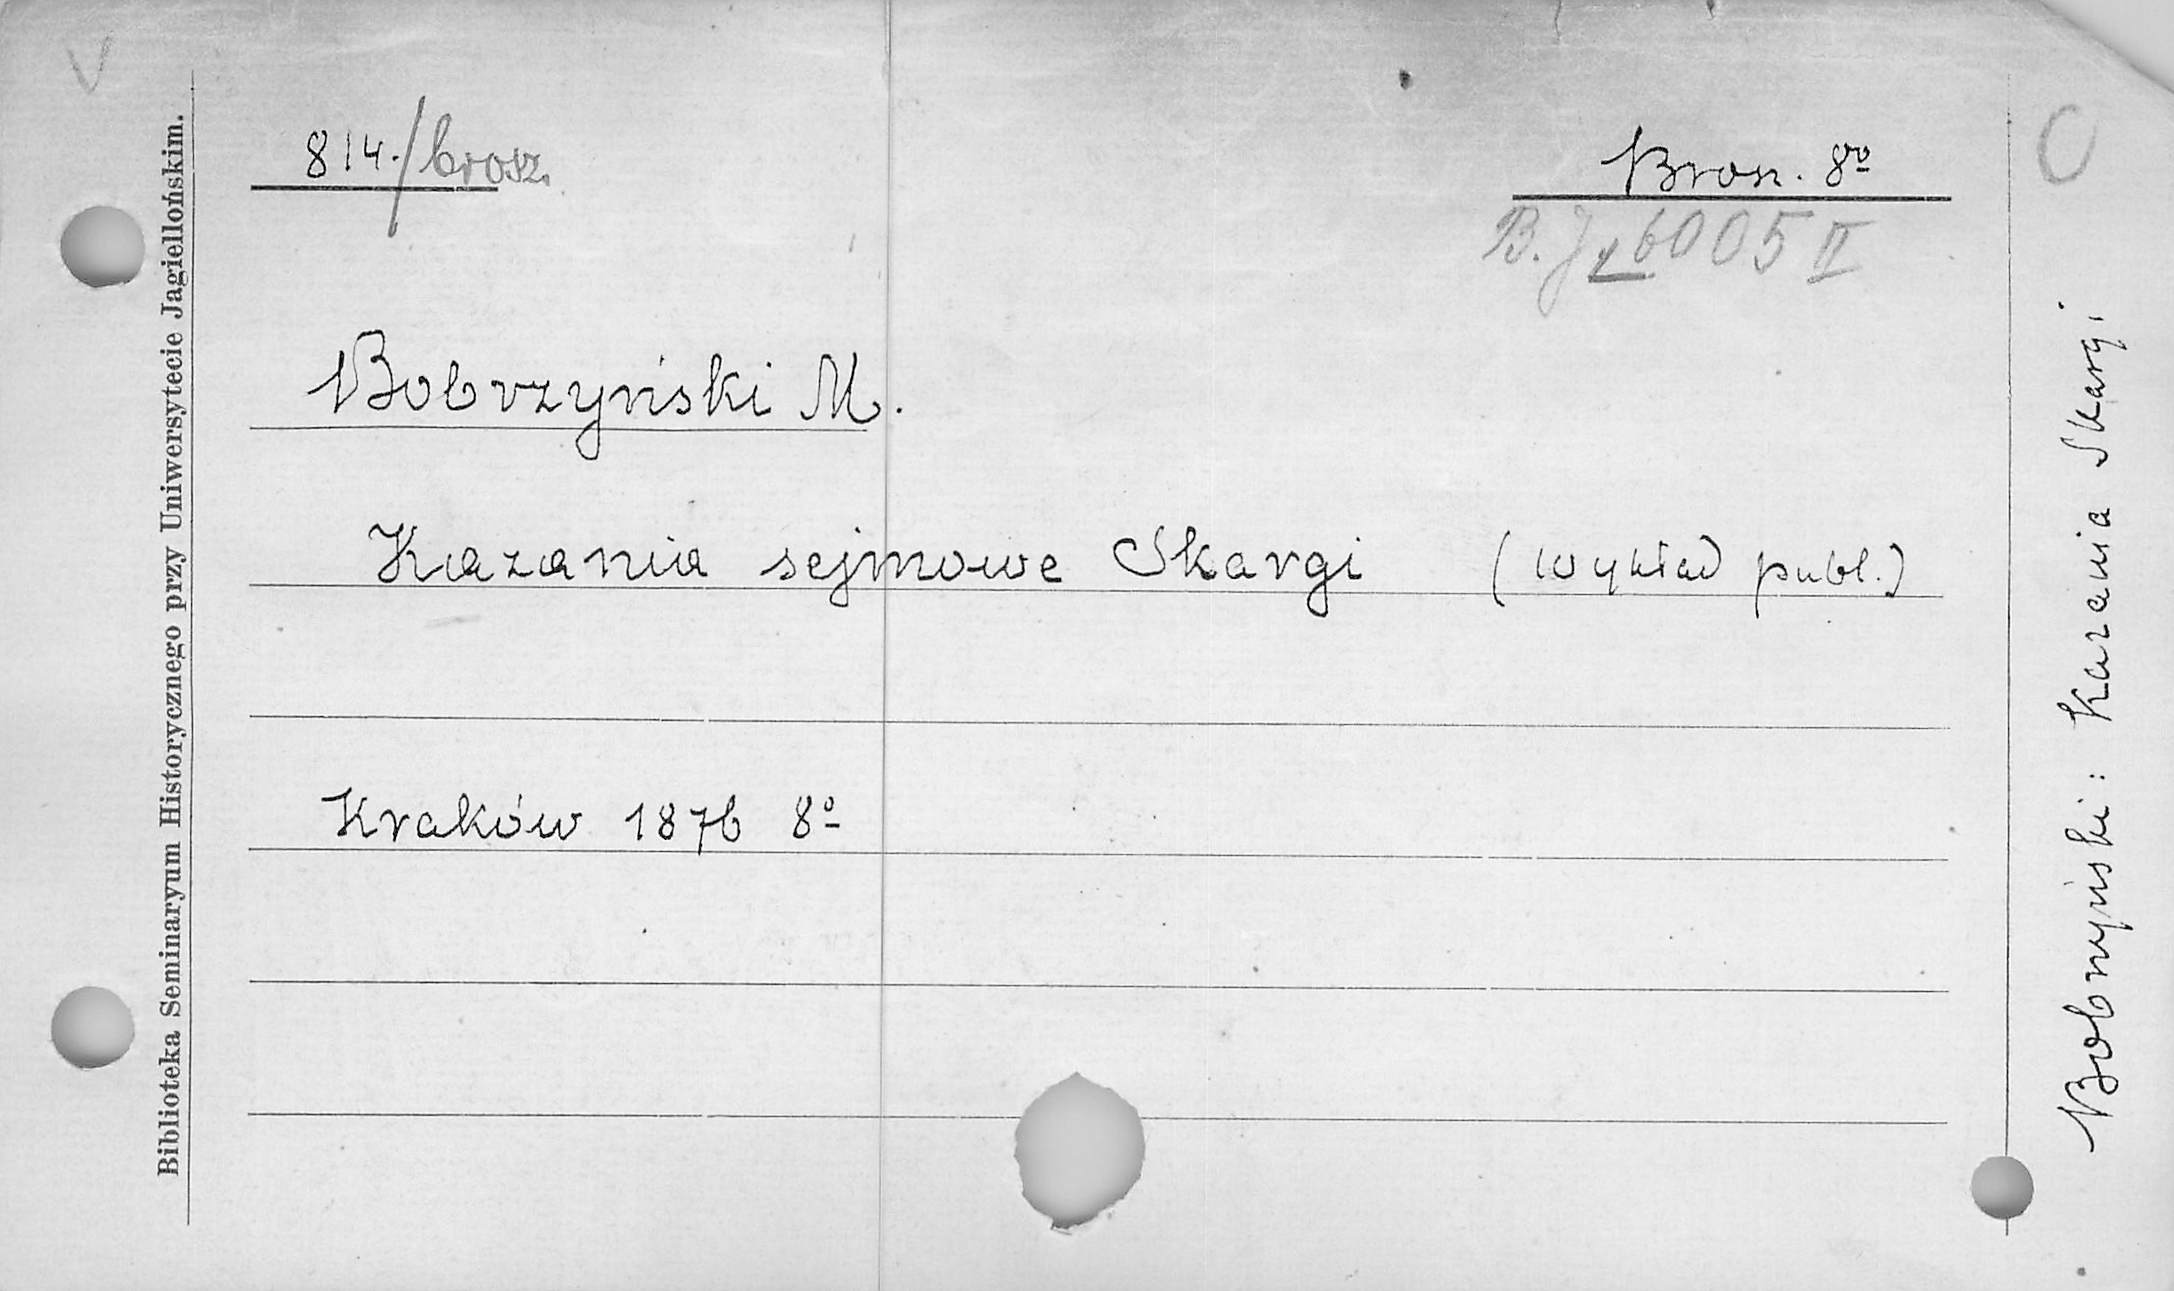 V
814./brosz.
Brosz. 8º
C
B. J. 6005 II
Bobrzyński M.
Kazania sejmowe Skargi (wykład publ.)
Kraków 1876 8º
Biblioteka Seminaryum Historycznego przy Uniwersytecie Jagiellońskim.
Bobrzyński: Kazania Skargi